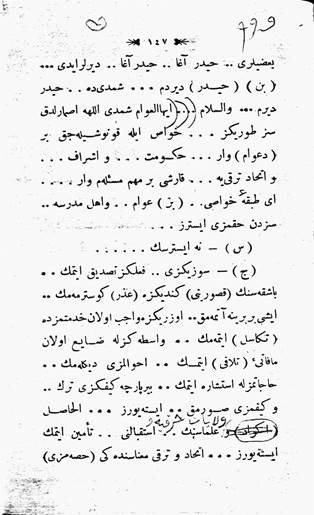 ١٤٧
بعضیلری .. حیدر آغا .. حیدر آغا .. دیرلرایدی ...
( بن ) ( حیـدر ) دیردم ... شمدی‌ده .. حیدر
دیرم ... والسلام ... ایها العوام شمدی اللهه اصمارلدق
سز طوریکز ... خواص ایله قونوشیله‌جق بر
( دعوام ) وار ... حکـومت ... و اشراف ...
و اتحاد ترقی‌یه ... قارشی بر مهم مسئله‌م وار ...
ای طبقهٔ خواصی .. ( بز ) عوام .. واهل مدرسه ..
سزدن حقمزی ایسترز ...
( س ) - نه ایسترسك ......
( ج ) - سوزیکزی .. فعلکز تصدیق ایتمك ..
باشقه‌سنك ( قصورینی ) کندیکزه ( عذر ) کوسترمه‌مك ..
ایشی بر برینه آتمه‌مق .. اوزریکزه واجب اولان خدمتمزده
( تکاسل ) ایتمه‌مك .. واسطه کزله ضایع اولان
مافاتی ( تلافی ) ایتمـك .. احوالمزی دیکله‌مك ..
حاجاتمزله استشاره ایتمك .. بر پارچه کیفکزی ترك ..
و کیفمزی صورمق .. ایسته‌یورز ... الحاصل
و علماسنك .. استقبالنی .. تأمین ایتمك
ایسته‌یورز ... اتحاد و ترقی معناسنده کی ( حصه‌مزی )